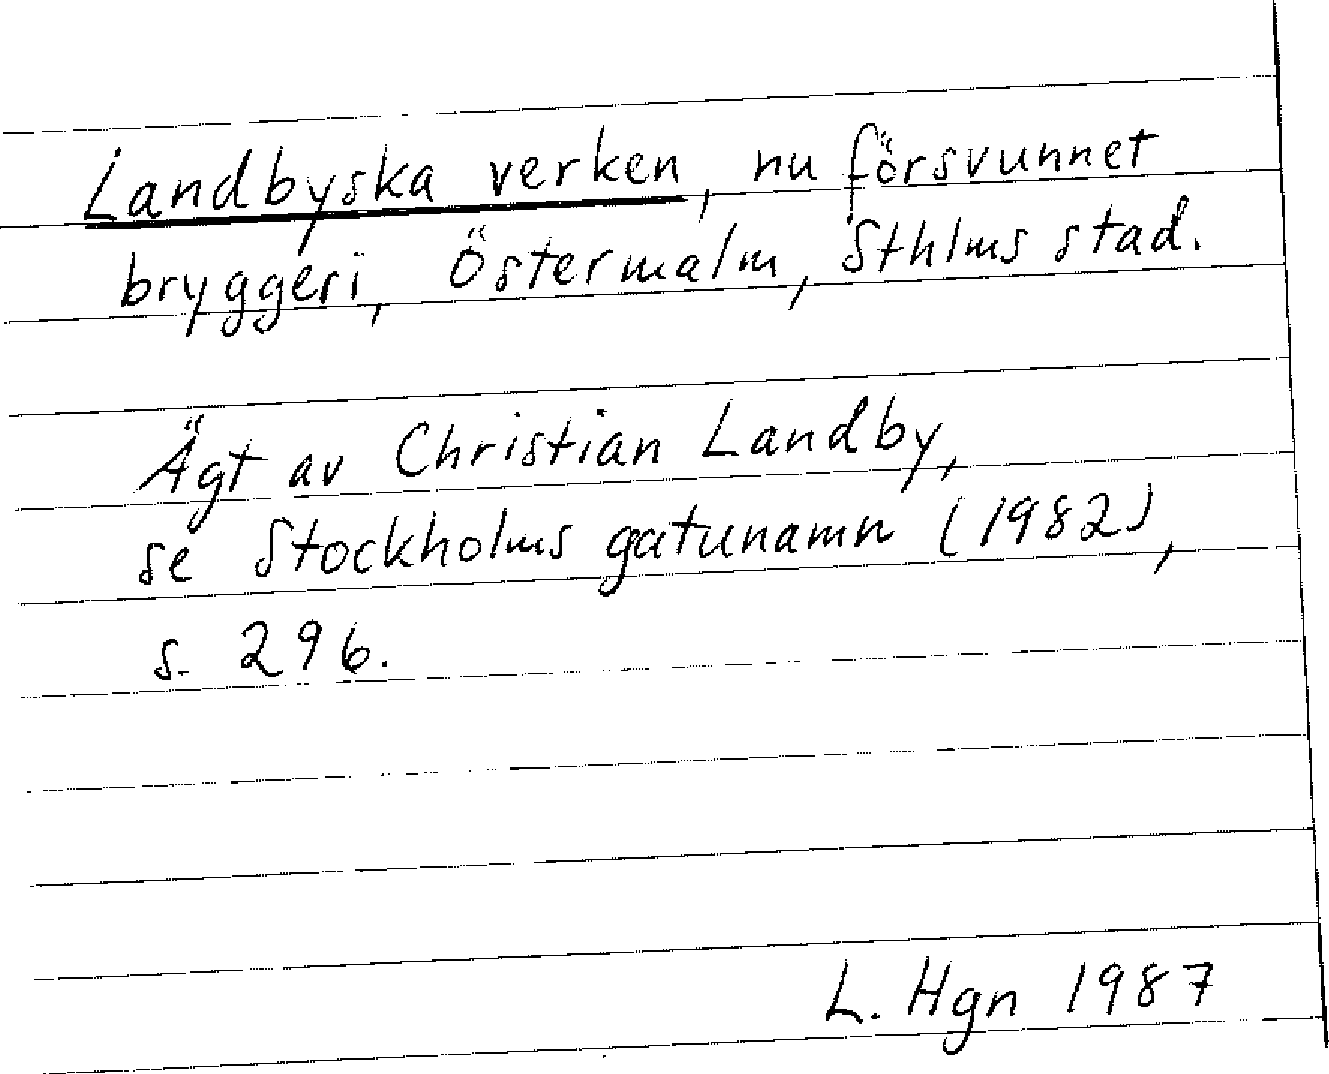 Landbyska verken, nu försvunnet
bryggeri, Östermalm, Sthlms stad.
Ägt av Christian Landby,
se Stockholms gatunamn (1982),
s. 296.
L. Hgn 1987